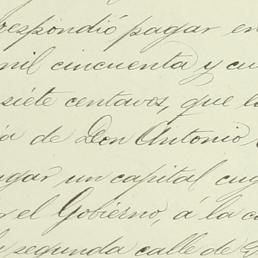 respondió pagar en
mil cincuenta y cu
siete centavos, que l
de Don Antonio
ugar un capital cuy
el Gobierno, á la c
segunda calle de